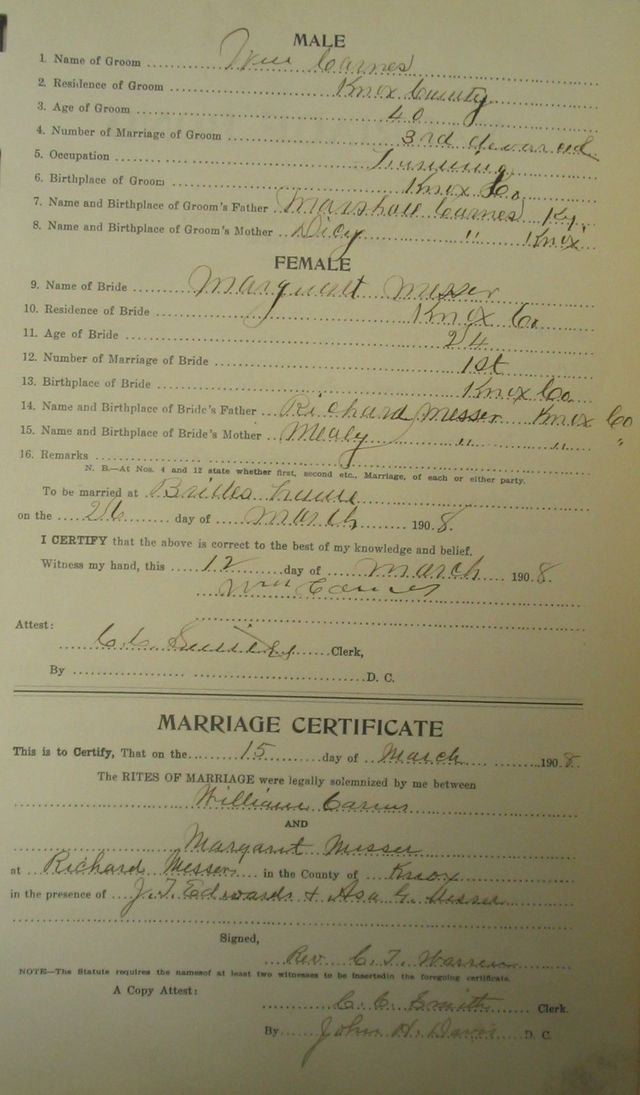 MALE
1. Name of Groom Wm Carnes
2. Residence of Groom Knox County
3. Age of Groom 40
4. Number of Marriage of Groom 3rd
5. Occupation Farming
6. Birthplace of Groom Knox Co
7. Name and Birthplace of Groom's Father Marshall Carnes Ky.
8. Name and Birthplace of Groom's Mother Dicy " Knox
FEMALE
9. Name of Bride Messer
10. Residence of Bride Knox Co
11. Age of Bride 24
12. Number of Marriage of Bride 1st
13. Birthplace of Bride Knox Co
14. Name and Birthplace of Bride's Father Richard Messer Knox Co
15. Name and Birthplace of Bride's Mother Mealy " " "
16. Remarks
N. B.—At Nos. 4 and 12 state whether first, second etc., Marriage, of each or either party.
To be married at Brides
on the 26 day of March 1908.
I CERTIFY that the above is correct to the best of my knowledge and belief.
Witness my hand, this 12 day of March 1908.
Wm Carnes
Attest:
C. C. Smith Clerk,
By D. C.
MARRIAGE CERTIFICATE
This is to Certify, That on the 15 day of March 1908.
The RITES OF MARRIAGE were legally solemnized by me between
William Carnes
AND
Margaret Messer
at Richard Messers in the County of Knox
in the presence of J. T. Edwards & Asa G. Messer
Signed,
Rev. C. T. Warren
NOTE—The Statute requires the namesof at least two witnesses to be insertedin the foregoing certificate.
A Copy Attest:
C. C. Smith Clerk.
By John H. Davis D. C.